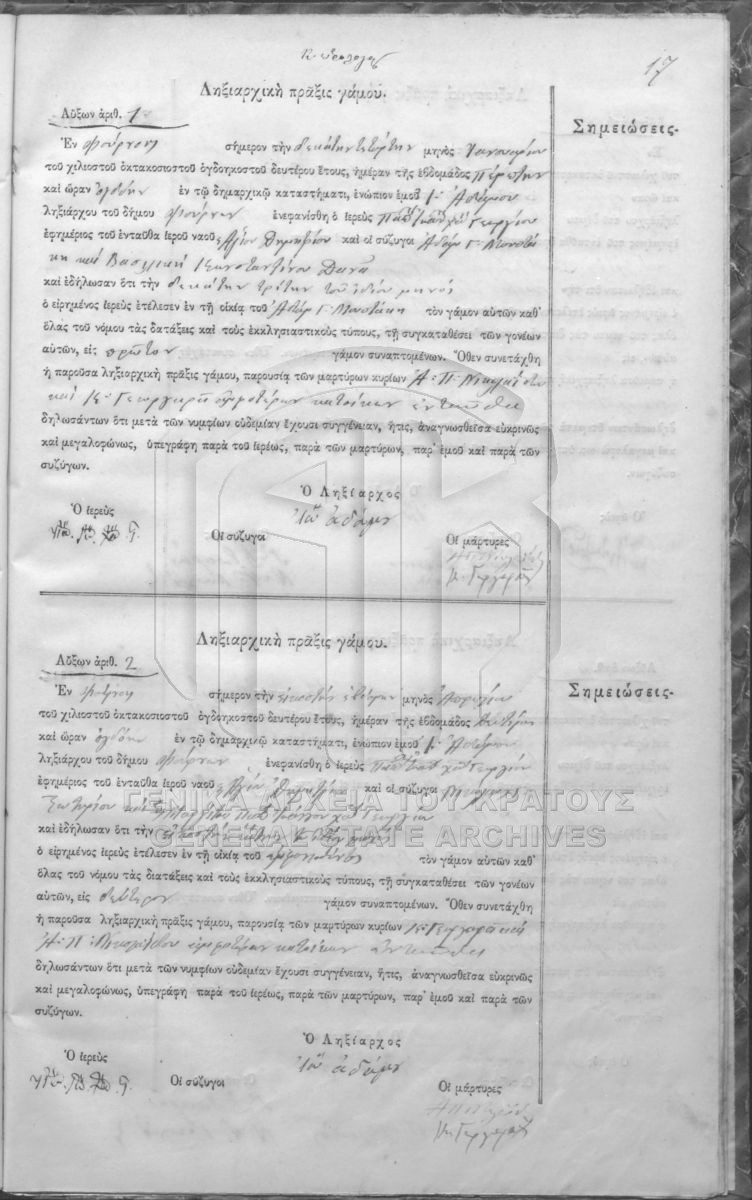 17
Ληξιαρχικὴ πρᾶξις γάμου.
Αὔξων ἀριθ. 1
Σημειώσεις.
Ἐν Φούρνοι σήμερον τὴν δεκάτην τετάρτην μηνὸς Ἰανουαρίου
τοῦ χιλιοστοῦ ὀκτακοσιοστοῦ ὀγδοηκοστοῦ δευτέρου ἔτους, ἡμέραν τῆς ἑβδομάδος Πέμπτην
καὶ ὥραν ὀγδόην ἐν τῷ δημαρχικῷ καταστήματι, ἐνώπιον ἐμοῦ Ἰ. Ἀδάμου
ληξιάρχου τοῦ δήμου Φούρνων ἐνεφανίσθη ὁ ἱερεὺς Γεωργίου
ἐφημέριος τοῦ ἐνταῦθα ἱεροῦ ναοῦ Ἁγίου Δημητρίου καὶ οἱ σύζυγοι Ἀδάμ Γ. Μουστά
κη καὶ Βασιλικὴ Κωνσταντίνου
καὶ ἐδήλωσαν ὅτι τὴν δεκάτην τρίτην τοῦ ἰδίου μηνός
ὁ εἰρημένος ἱερεὺς ἐτέλεσεν ἐν τῇ οἰκίᾳ τοῦ Ἀδάμ Γ. Μουστάκη τὸν γάμον αὐτῶν καθ'
ὅλας τοῦ νόμου τὰς διατάξεις καὶ τοὺς ἐκκλησιαστικοὺς τύπους, τῇ συγκαταθέσει τῶν γονέων
αὐτῶν, εἰς πρῶτον γάμον συναπτομένων. Ὅθεν συνετάχθη
ἡ παροῦσα ληξιαρχικὴ πρᾶξις γάμου, παρουσίᾳ τῶν μαρτύρων κυρίων Ἀ. Π.
καὶ Κ. Γεωργαρᾶ ἀμφοτέρων κατοίκων ἐνταῦθα
δηλωσάντων ὅτι μετὰ τῶν νυμφίων οὐδεμίαν ἔχουσι συγγένειαν, ἥτις, ἀναγνωσθεῖσα εὐκρινῶς
καὶ μεγαλοφώνως, ὑπεγράφη παρὰ τοῦ ἱερέως, παρὰ τῶν μαρτύρων, παρ' ἐμοῦ καὶ παρὰ τῶν
συζύγων.
Ὁ Ληξίαρχος
Ἰω ἀδάμου
Ὁ ἱερεὺς
Οἱ σύζυγοι
Οἱ μάρτυρες
Ληξιαρχικὴ πρᾶξις γάμου.
Αὔξων ἀριθ. 2
Σημειώσεις.
Ἐν Φούρνοι σήμερον τὴν εἰκοστὴν μηνὸς Ἀπριλίου
τοῦ χιλιοστοῦ ὀκτακοσιοστοῦ ὀγδοηκοστοῦ δευτέρου ἔτους, ἡμέραν τῆς ἑβδομάδος
καὶ ὥραν ὀγδόην ἐν τῷ δημαρχικῷ καταστήματι, ἐνώπιον ἐμοῦ Ἰ. Ἀδάμου
ληξιάρχου τοῦ δήμου Φούρνων ἐνεφανίσθη ὁ ἱερεὺς Γεωργίου
ἐφημέριος τοῦ ἐνταῦθα ἱεροῦ ναοῦ Ἁγίου Δημητρίου καὶ οἱ σύζυγοι
Σωτηρίου καὶ Γεωργίου
ΓΕΝΙΚΑ ΑΡΧΕΙΑ ΤΟΥ ΚΡΑΤΟΥΣ
GENERAL STATE ARCHIVES
καὶ ἐδήλωσαν ὅτι τὴν εἰκοστὴν
ὁ εἰρημένος ἱερεὺς ἐτέλεσεν ἐν τῇ οἰκίᾳ τοῦ τὸν γάμον αὐτῶν καθ'
ὅλας τοῦ νόμου τὰς διατάξεις καὶ τοὺς ἐκκλησιαστικοὺς τύπους, τῇ συγκαταθέσει τῶν γονέων
αὐτῶν, εἰς δεύτερον γάμον συναπτομένων. Ὅθεν συνετάχθη
ἡ παροῦσα ληξιαρχικὴ πρᾶξις γάμου, παρουσίᾳ τῶν μαρτύρων κυρίων Κ. Γεωργαρᾶ καὶ
Ἀ. Π. ἀμφοτέρων κατοίκων ἐνταῦθα
δηλωσάντων ὅτι μετὰ τῶν νυμφίων οὐδεμίαν ἔχουσι συγγένειαν, ἥτις, ἀναγνωσθεῖσα εὐκρινῶς
καὶ μεγαλοφώνως, ὑπεγράφη παρὰ τοῦ ἱερέως, παρὰ τῶν μαρτύρων, παρ' ἐμοῦ καὶ παρὰ τῶν
συζύγων.
Ὁ Ληξίαρχος
Ἰω ἀδάμου
Ὁ ἱερεὺς
Οἱ σύζυγοι
Οἱ μάρτυρες